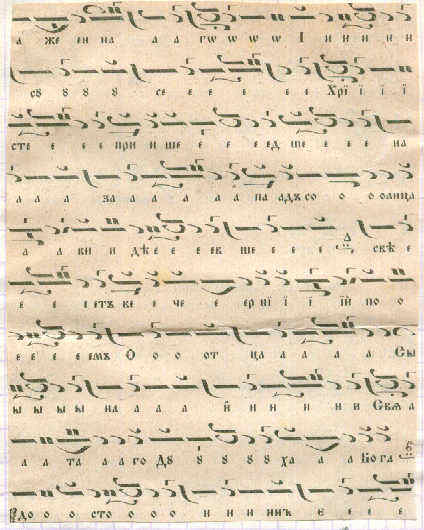 а же ен на а а гѡ ѡ ѡ ѡ І и и и и и
сȣ ȣ ȣ ȣ се е е е е Хрї ї ї ї
сте е е е при и ше е е е ед ше е е е на
а а а за а а а а а па адъ со о о олнца
а а ви и дѣ е е е ев ше е е е свѣ е
е е е етъ ве е че е е ер нї ї ї їй по о
е е е е емъ О о о от ца а а а а Сы
ы ы ы ы на а а а й и и и и и Свѧ а
а а та а а го Дȣ ȣ ȣ ȣ ȣ ха а а Бога
до о о сто о о о и и и инъ Е е е е